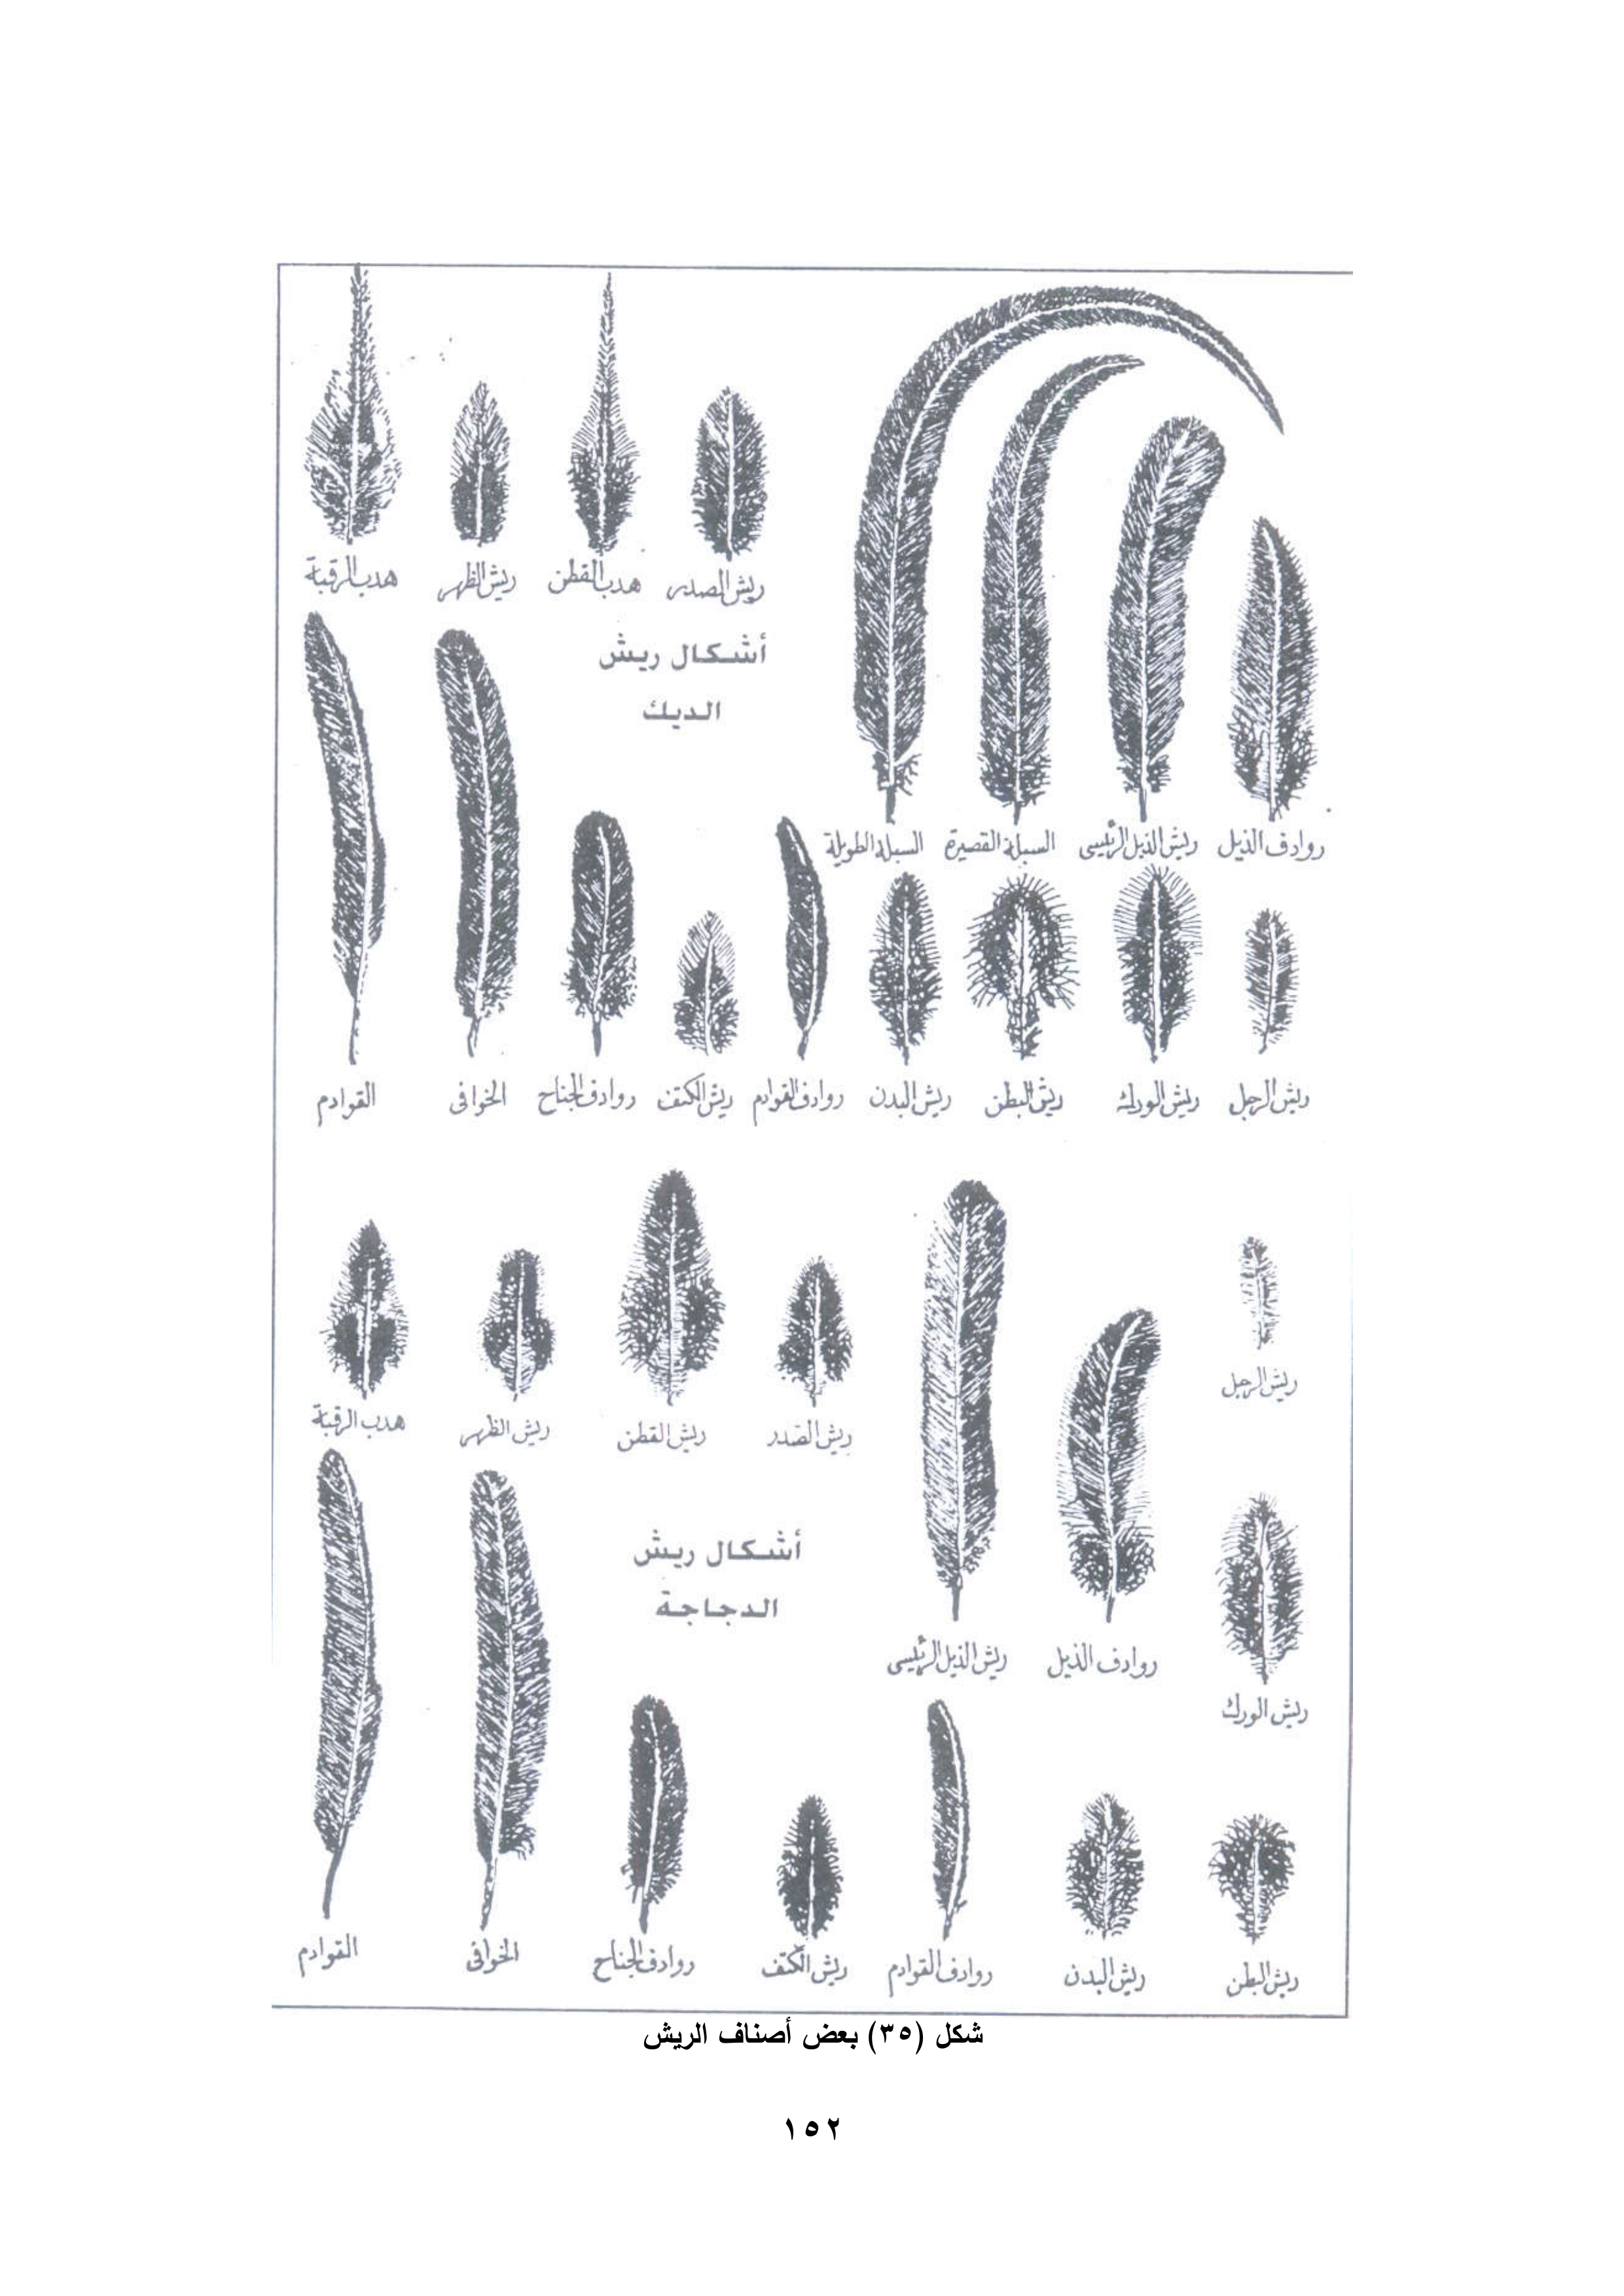 ريش الصدر هدب القطن ريش الظهر هدب الرقبة
أشكال ريش
الديك
روادف الذيل ريش الذيل الرئيسى السبلة القصيرة السبلة الطويلة
ريش الرجل ريش الورك ريش البطن ريش البدن روادف القوادم ريش الكتف روادف الجناح الخوافى القوادم
ريش الرجل
ريش الصدر ريش القطن ريش الظهر هدب الرقبة
أشكال ريش
الدجاجة
روادف الذيل ريش الذيل الرئيسى
ريش الورك
ريش البطن ريش البدن روادف القوادم ريش الكتف روادف الجناح الخوافى القوادم
شكل (٣٥) بعض أصناف الريش
١٥٢